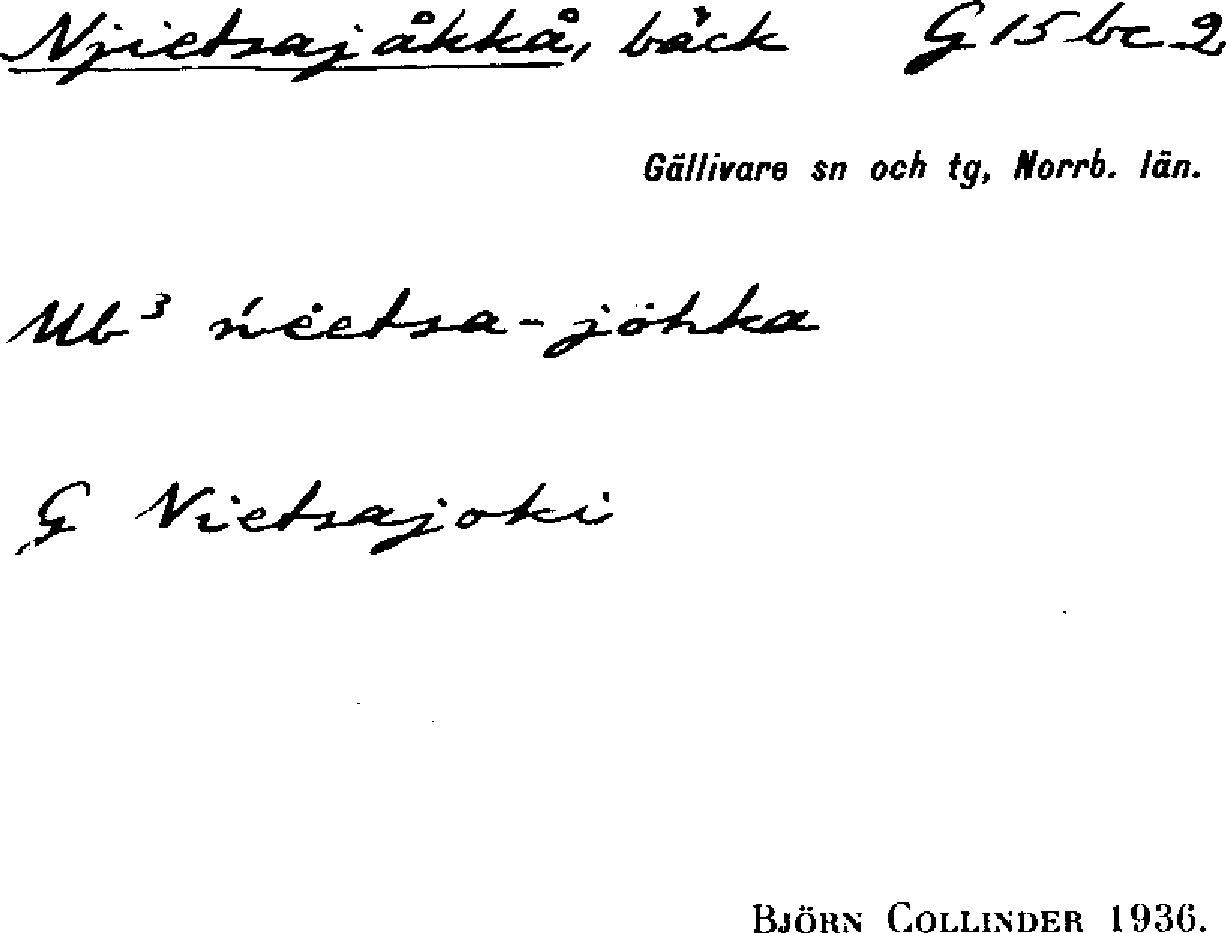 Njietsajåkkå, bäck G 15 bc 2
Gällivare sn och tg, Norrb. län.
Ub³ ńėetsa-jȯhka
G Nietsajoki
BJÖRN COLLINDER 1936.